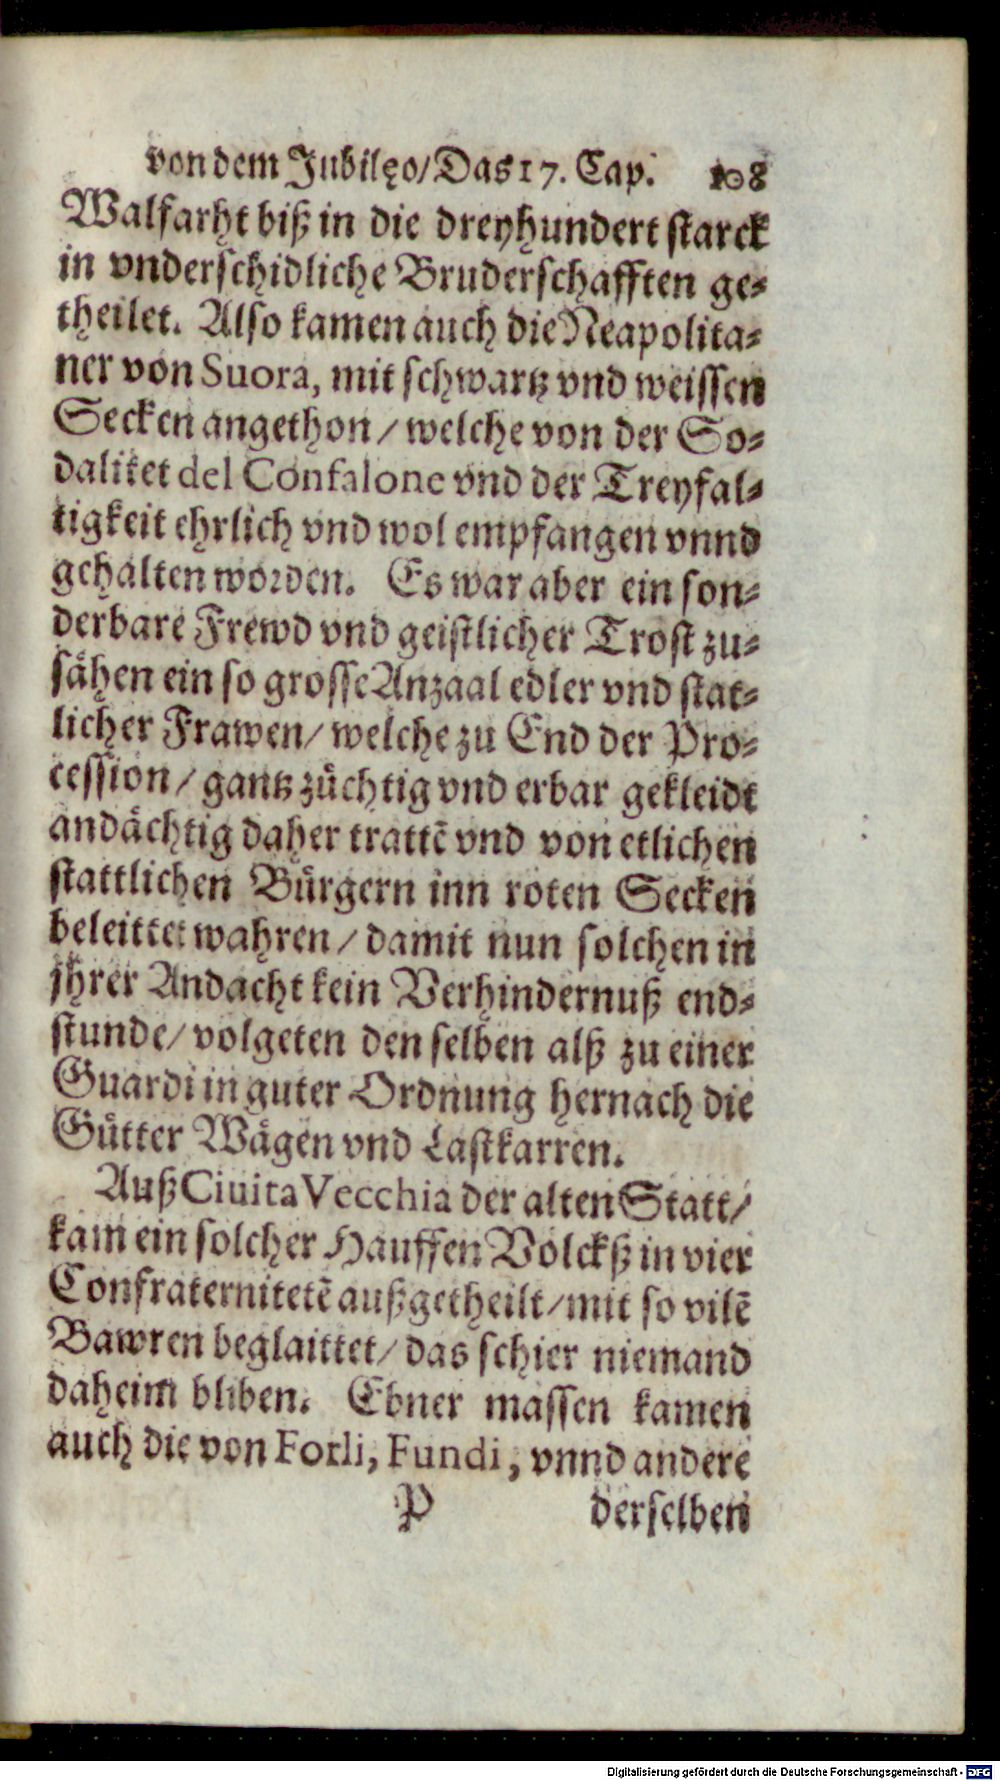 von dem Jubilęo/Das 17. Cap. 108
Walfarht biß in die dreyhundert starck
in vnderschidliche Bruderschafften ge-
theilet. Also kamen auch die Neapolita-
ner von Suora, mit schwartz vnd weissen
Secken angethon/welche von der So-
dalitet del Confalone vnd der Treyfal-
tigkeit ehrlich vnd wol empfangen vnnd
gehalten worden. Es war aber ein son-
derbare Frewd vnd geistlicher Trost zu-
sähen ein so grosse Anzaal edler vnd stat-
licher Frawen/welche zu End der Pro-
cession/gantz züchtig vnd erbar gekleidt
andächtig daher trattē vnd von etlichen
stattlichen Bürgern inn roten Secken
beleittet wahren/damit nun solchen in
jhrer Andacht kein Verhindernuß end-
stunde/volgeten den selben alß zu einer
Guardi in guter Ordnung hernach die
Gütter Wägen vnd Lastkarren.
Auß Ciuita Vecchia der alten Statt/
kam ein solcher Hauffen Volckß in vier
Confraternitetē außgetheilt/mit so vilē
Bawren beglaittet/das schier niemand
daheim bliben. Ebner massen kamen
auch die von Forli, Fundi, vnnd andere
P derselben
Digitalisierung gefördert durch die Deutsche Forschungsgemeinschaft - DFG